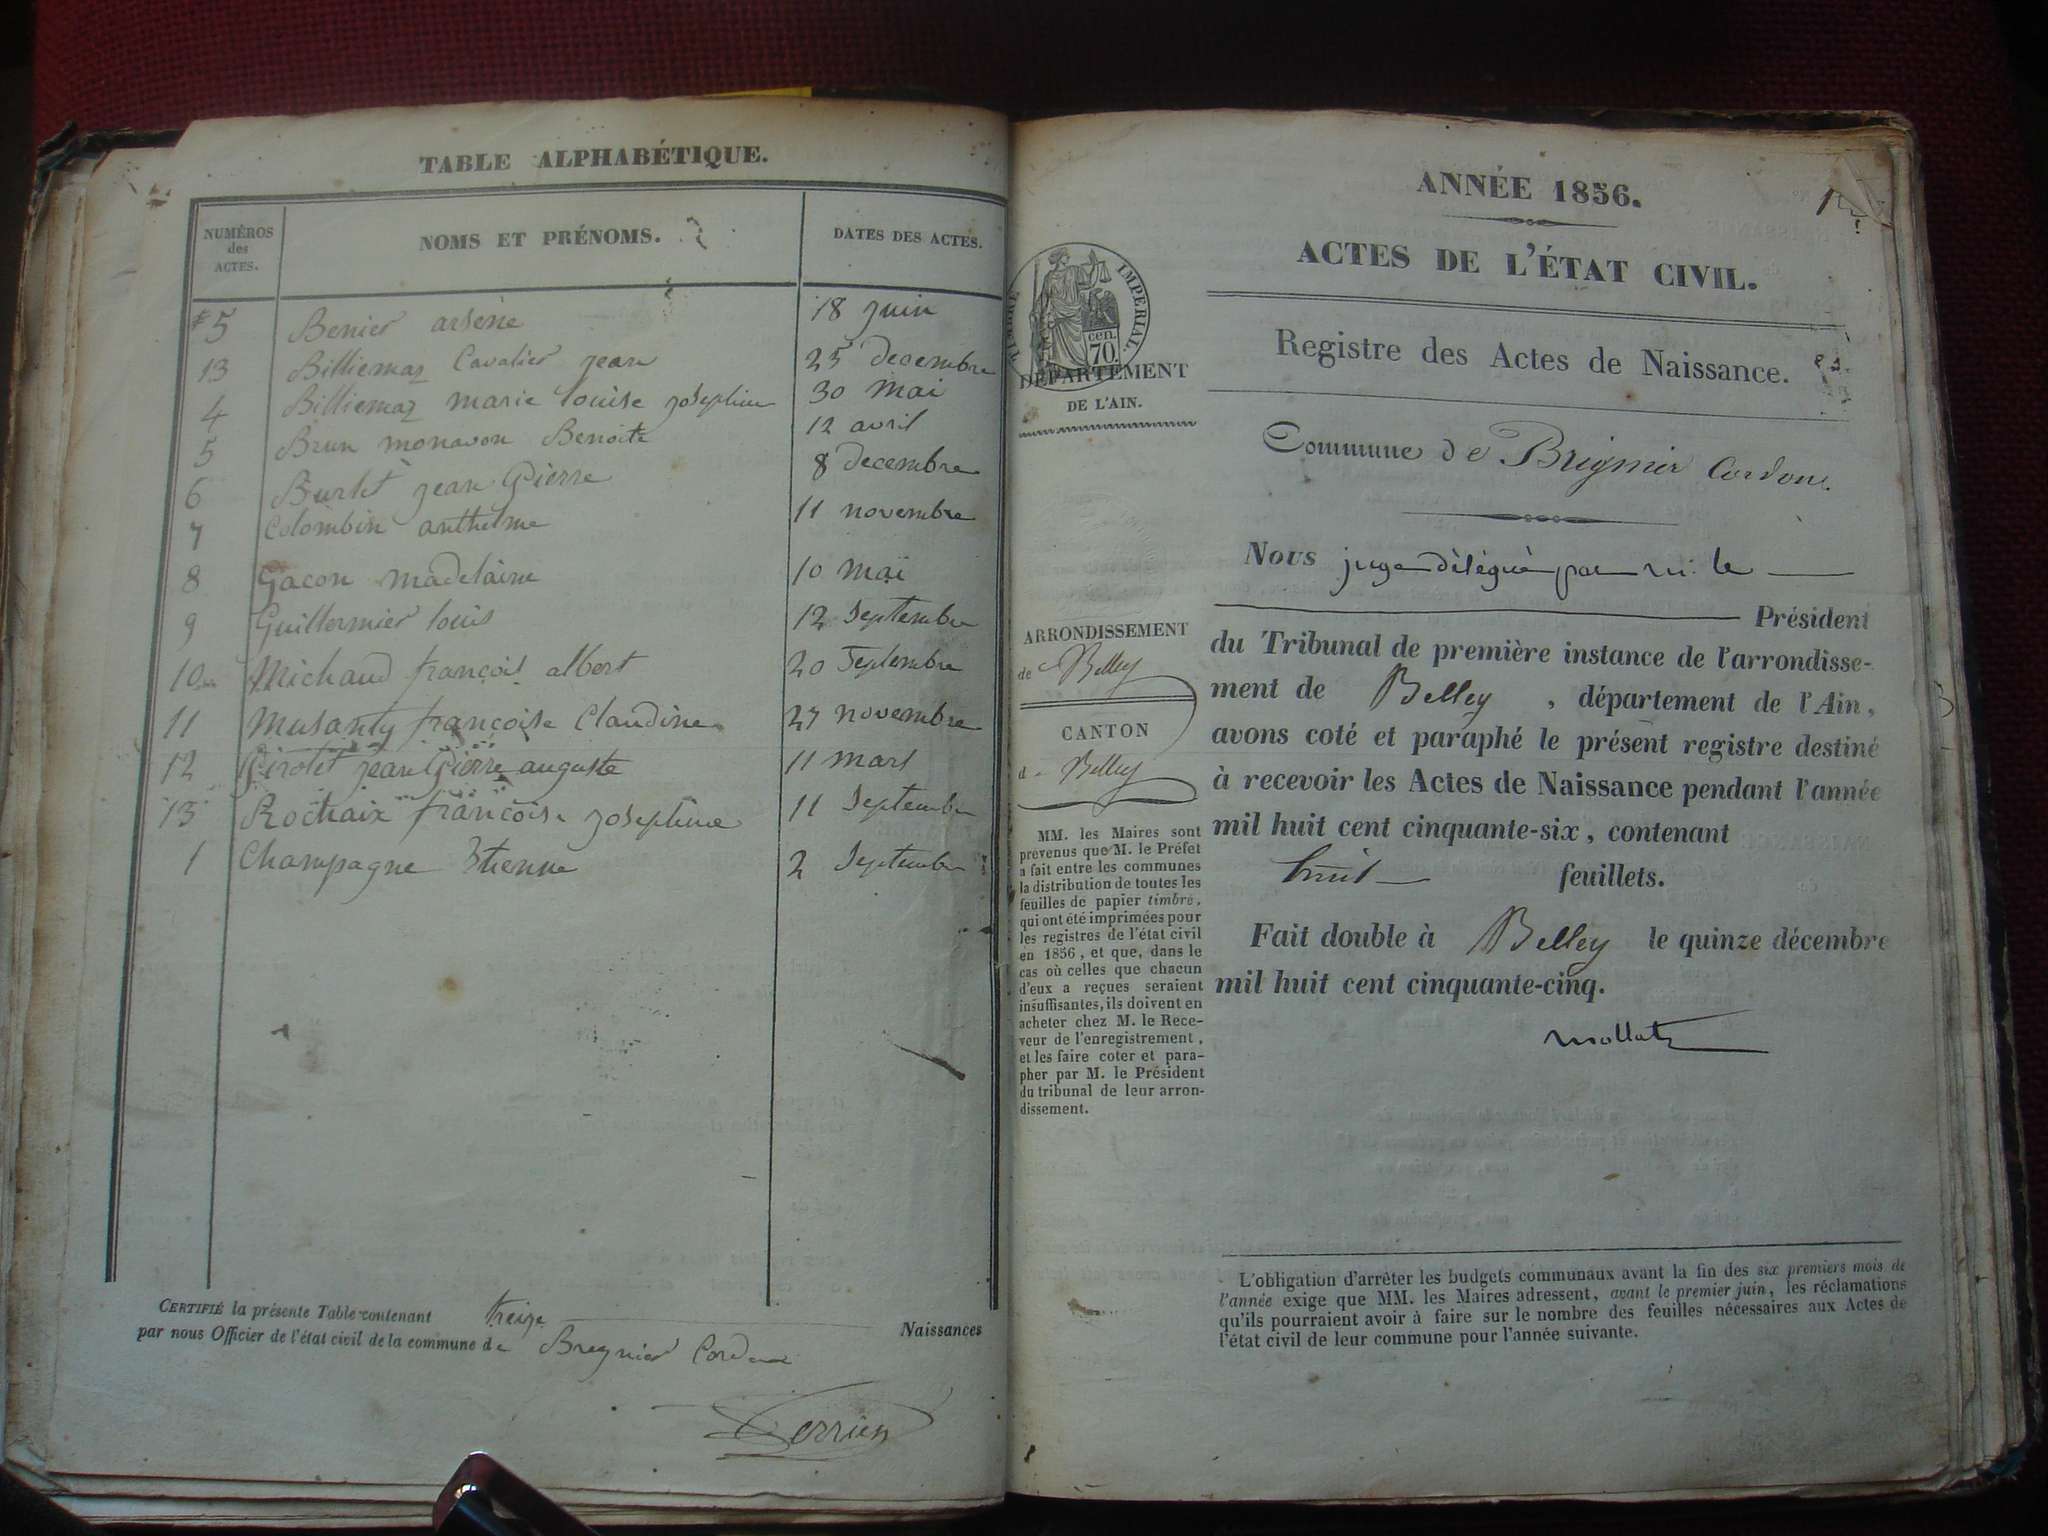 TABLE ALPHABÉTIQUE.
NUMÉROS des ACTES. NOMS ET PRÉNOMS. DATES DES ACTES.
5 Benier arsène 18 juin
13 Billiemaz Cavalier jean 25 decembre
4 Billiemaz marie louise josephine 30 mai
5 Brun monavon Benoite 12 avril
6 Burlet jean Pierre 8 decembre
7 Colombin anthelme 11 novembre
8 Gacon madelaine 10 mai
9 Guillermier louis 12 Septembre
10 Michaud françois albert 20 Septembre
11 Musanty françoise Claudine 27 novembre
12 Pirolet jean Pierre auguste 11 mars
13 Rochaix françoise josephine 11 Septembre
1 Champagne Etienne 2 Septembre
CERTIFIÉ la présente Table contenant treize Naissances
par nous Officier de l'état civil de la commune de Bregnier Cordon
Perrien
ANNÉE 1856.
ACTES DE L'ÉTAT CIVIL.
Registre des Actes de Naissance.
TIMBRE IMPÉRIAL.
70 cen.
DÉPARTEMENT
DE L'AIN.
Commune de Brignier Cordon.
Nous juge délégué par m. le
Président
du Tribunal de première instance de l'arrondisse-
ment de Belley, département de l'Ain,
avons coté et paraphé le présent registre destiné
à recevoir les Actes de Naissance pendant l'année
mil huit cent cinquante-six, contenant
huit feuillets.
Fait double à Belley le quinze décembre
mil huit cent cinquante-cinq.
mollat
ARRONDISSEMENT
de Belley
CANTON
de Belley
MM. les Maires sont
prévenus que M. le Préfet
a fait entre les communes
la distribution de toutes les
feuilles de papier timbré,
qui ont été imprimées pour
les registres de l'état civil
en 1856, et que, dans le
cas où celles que chacun
d'eux a reçues seraient
insuffisantes, ils doivent en
acheter chez M. le Rece-
veur de l'enregistrement,
et les faire coter et para-
pher par M. le Président
du tribunal de leur arron-
dissement.
L'obligation d'arrêter les budgets communaux avant la fin des six premiers mois de
l'année exige que MM. les Maires adressent, avant le premier juin, les réclamations
qu'ils pourraient avoir à faire sur le nombre des feuilles nécessaires aux Actes de
l'état civil de leur commune pour l'année suivante.